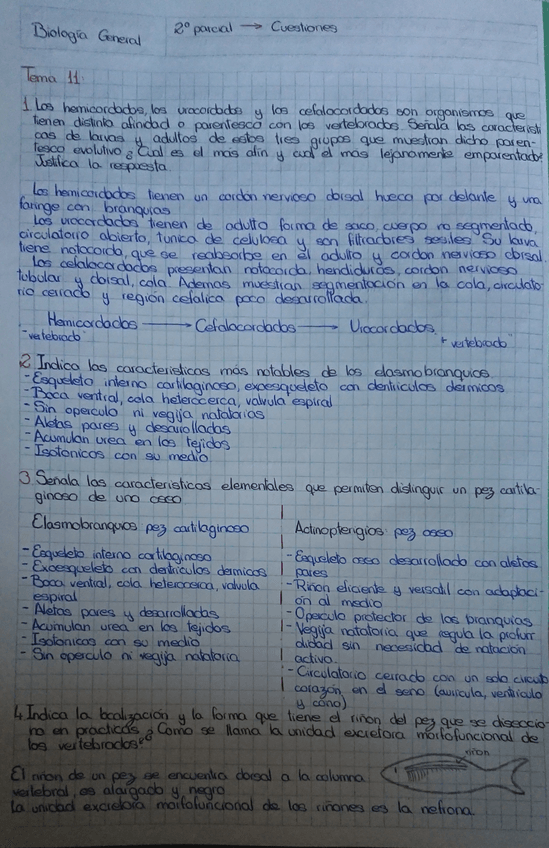 Biología General
2º parcial → Cuestiones
Tema 11:
1. Los hemicordados, los urocordados y los cefalocordados son organismos que
tienen distinta afinidad o parentesco con los vertebrados. Señala las característi
cas de larvas y adultos de estos tres grupos que muestran dicho paren-
tesco evolutivo ¿Cuál es el más afín y cuál el más lejanamente emparentado?
Justifica la respuesta.
Los hemicordados tienen un cordón nervioso dorsal hueco por delante y una
faringe con branquias.
Los urocordados tienen de adulto forma de saco, cuerpo no segmentado,
circulatorio abierto, túnica de celulosa y son filtradores sesiles. Su larva
tiene notocorda, que se reabsorbe en el adulto y cordón nervioso dorsal.
Los cefalocordados presentan notocorda, hendiduras, cordón nervioso
tubular y dorsal, cola. Además muestran segmentación en la cola, circulato-
rio cerrado y región cefálica poco desarrollada.
Hemicordados → Cefalocordados → Urocordados
- vertebrado
+ vertebrado
2. Indica las características más notables de los elasmobranquios
- Esqueleto interno cartilaginoso, exoesqueleto con dentículos dérmicos
- Boca ventral, cola heterocerca, válvula espiral
- Sin opérculo ni vegija natatorias
- Aletas pares y desarrolladas
- Acumulan urea en los tejidos
- Isotónicos con su medio
3. Señala las características elementales que permiten distinguir un pez cartila-
ginoso de uno óseo
Elasmobranquios pez cartilaginoso
- Esqueleto interno cartilaginoso
- Exoesqueleto con dentículos dérmicos
- Boca ventral, cola heterocerca, válvula
espiral
- Aletas pares y desarrolladas
- Acumulan urea en los tejidos
- Isotónicos con su medio
- Sin opérculo ni vegija natatoria
Actinopterigios pez óseo
- Esqueleto óseo desarrollado con aletas
pares
- Riñón eficiente y versátil con adaptaci-
ón al medio
- Opérculo protector de las branquias
- Vegija natatoria que regula la profun
didad sin necesidad de natación
activa.
- Circulatorio cerrado con un solo circuito
corazón en el seno (aurícula, ventrículo
y cono)
4. Indica la localización y la forma que tiene el riñón del pez que se disecciο-
na en prácticas ¿Cómo se llama la unidad excretora morfofuncional de
los vertebrados?
riñón
El riñón de un pez se encuentra dorsal a la columna
vertebral, es alargado y negro
La unidad excretora morfofuncional de los riñones es la nefrona